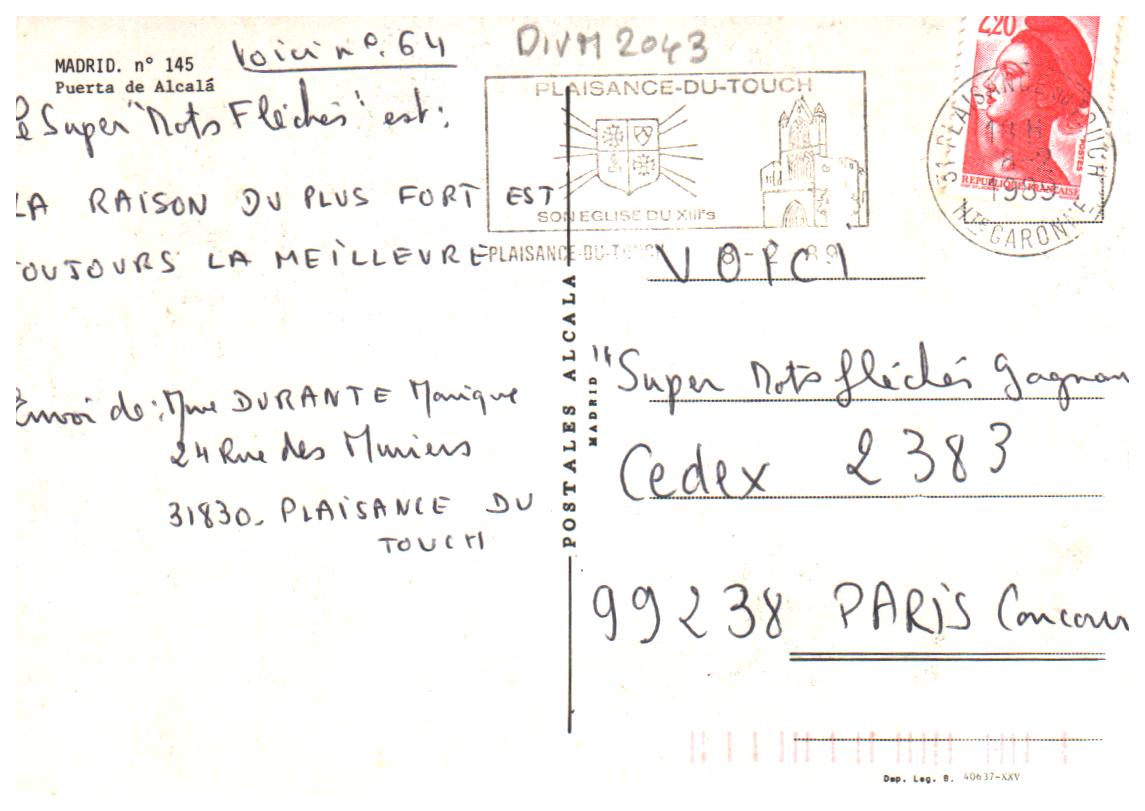 MADRID. nº 145
Puerta de Alcalá
Voici nº. 64
DIVM 2043
le Super "Mots Fléchés" est:
LA RAISON DU PLUS FORT EST
TOUJOURS LA MEILLEURE
Envoi de: Mme DURANTE Monique
24 Rue des Muriers
31830. PLAISANCE DU
TOUCH
PLAISANCE-DU-TOUCH
SON EGLISE DU XIIIe S
PLAISANCE-DU-TOUCH 8-2 89
2,20
POSTES
REPUBLIQUE FRANCAISE
31 PLAISANCE DU TOUCH
8-2
1989
Hte GARONNE
POSTALES ALCALA
MADRID
VOICI
"Super Mots fléchés Gagnan
Cedex 2383
99238 PARIS Concour
Dep. Leg. B. 40637-XXV